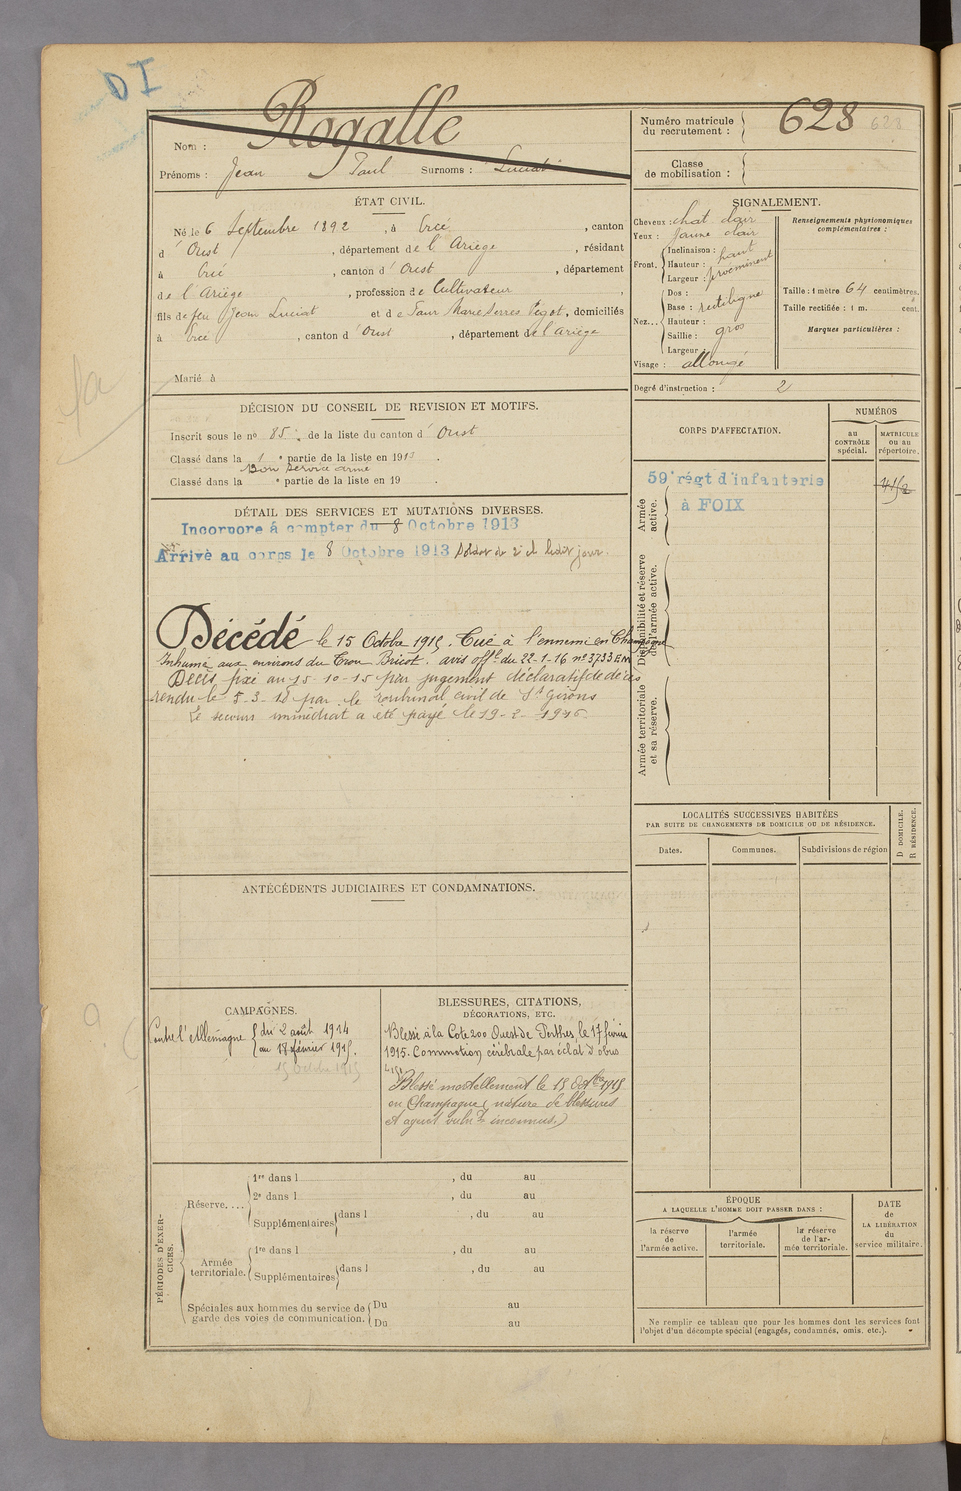 DI
Nom : Rogalle
Prénoms : Jean Paul Surnoms : Luciat
ÉTAT CIVIL.
Né le 6 Septembre 1892, à Ercé, canton
d'Oust, département de l'Ariège, résidant
à Ercé, canton d'Oust, département
de l'Ariège, profession de Cultivateur,
fils de feu Jean Luciat et de Marie Serres, domiciliés
à Ercé, canton d'Oust, département de l'Ariège
Marié à
DÉCISION DU CONSEIL DE REVISION ET MOTIFS.
Inscrit sous le n° 85 de la liste du canton d'Oust
Classé dans la 1e partie de la liste en 1913.
Bon service armé
Classé dans la e partie de la liste en 19 .
DÉTAIL DES SERVICES ET MUTATIONS DIVERSES.
Incorporé á compter du 8 Octobre 1913
Arrivé au corps le 8 Octobre 1913 Soldat de 2e cl ledit jour.
Décédé le 15 Octobre 1915. Tué à l'ennemi en Champagne
Inhumé aux environs du Trou Bricot. avis offel du 22-1-16 n° 3733 EM
Décès fixé au 15-10-15 par jugement déclaratif de décès
rendu le 5-3-18 par le tribunal civil de St Girons
Le secours immédiat a été payé le 19-2-1916
ANTÉCÉDENTS JUDICIAIRES ET CONDAMNATIONS.
CAMPAGNES.
Contre l'Allemagne { du 2 août 1914
au 17 février 1915.
15 Octobre 1915
BLESSURES, CITATIONS,
DÉCORATIONS, ETC.
Blessé à la Cote 200 Ouest de Perthes, le 17 février
1915. Commotion cérébrale par éclat d'obus
Blessé mortellement le 15 Octbre 1915
en Champagne (nature de blessures
et agent vulnt inconnus.)
PÉRIODES D'EXERCICES.
Réserve....
1re dans l , du au
2e dans l , du au
Supplémentaires dans l , du au
Armée territoriale.
1re dans l , du au
Supplémentaires dans l , du au
Spéciales aux hommes du service de
garde des voies de communication.
Du au
Du au
Numéro matricule
du recrutement : 628 628
Classe
de mobilisation :
SIGNALEMENT.
Cheveux : chat clair
Yeux : jaune clair
Front.
Inclinaison :
Hauteur : haut
Largeur : proéminent
Nez...
Dos :
Base : rectiligne
Hauteur :
Saillie : gros
Largeur :
Visage : allongé
Renseignements physionomiques
complémentaires :
Taille : 1 mètre 64 centimètres.
Taille rectifiée : 1 m. cent.
Marques particulières :
Degré d'instruction : 2
CORPS D'AFFECTATION.
NUMÉROS
au
CONTRÔLE
spécial.
MATRICULE
ou au
répertoire.
Armée
active.
59e régt d'infanterie
à FOIX
Disponibilité et réserve
de l'armée active.
Armée territoriale
et sa réserve.
LOCALITÉS SUCCESSIVES HABITÉES
PAR SUITE DE CHANGEMENTS DE DOMICILE OU DE RÉSIDENCE.
Dates.
Communes.
Subdivisions de région
D DOMICILE.
R RÉSIDENCE.
ÉPOQUE
A LAQUELLE L'HOMME DOIT PASSER DANS :
la réserve
de
l'armée active.
l'armée
territoriale.
la réserve
de l'ar-
mée territoriale.
DATE
de
LA LIBÉRATION
du
service militaire.
Ne remplir ce tableau que pour les hommes dont les services font
l'objet d'un décompte spécial (engagés, condamnés, omis, etc.).